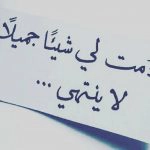 دمت لي شيئًا جميلًا
لا ينتهي ...